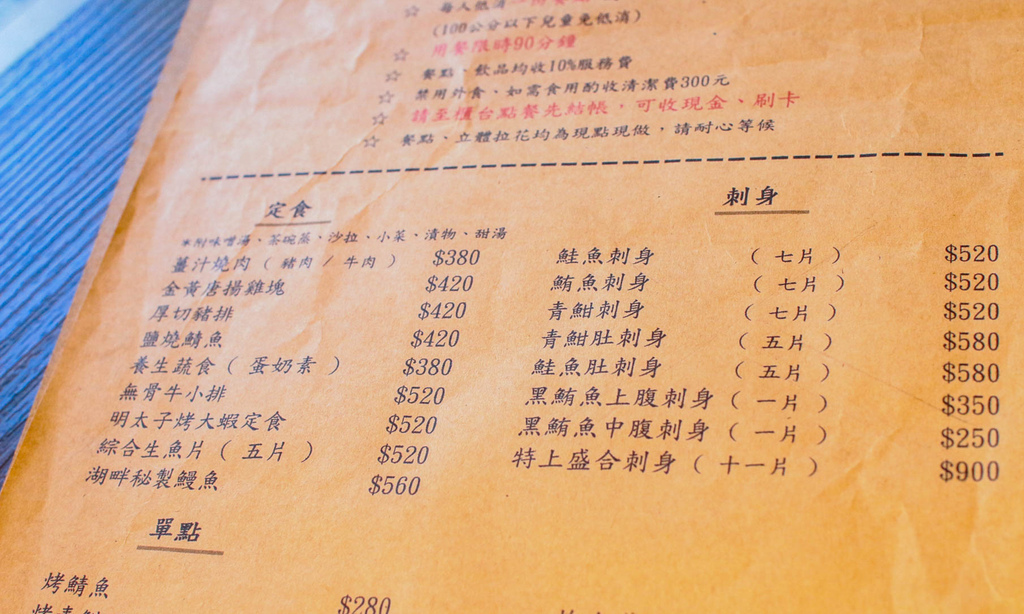 ☆ 每人低消一份餐
(100公分以下兒童免低消)
☆ 用餐限時90分鐘
☆ 餐點、飲品均收10%服務費
☆ 禁用外食、如需食用酌收清潔費300元
☆ 請至櫃台點餐先結帳，可收現金、刷卡
☆ 餐點、立體拉花均為現點現做，請耐心等候
定食
*附味噌湯、茶碗蒸、沙拉、小菜、漬物、甜湯
薑汁燒肉（豬肉 / 牛肉） $380
金黃唐揚雞塊 $420
厚切豬排 $420
鹽燒鯖魚 $420
養生蔬食（蛋奶素） $380
無骨牛小排 $520
明太子烤大蝦定食 $520
綜合生魚片（五片） $520
湖畔秘製鰻魚 $560
刺身
鮭魚刺身（七片） $520
鮪魚刺身（七片） $520
青魽刺身（七片） $520
青魽肚刺身（五片） $580
鮭魚肚刺身（五片） $580
黑鮪魚上腹刺身（一片） $350
黑鮪魚中腹刺身（一片） $250
特上盛合刺身（十一片） $900
單點
烤鯖魚
$280